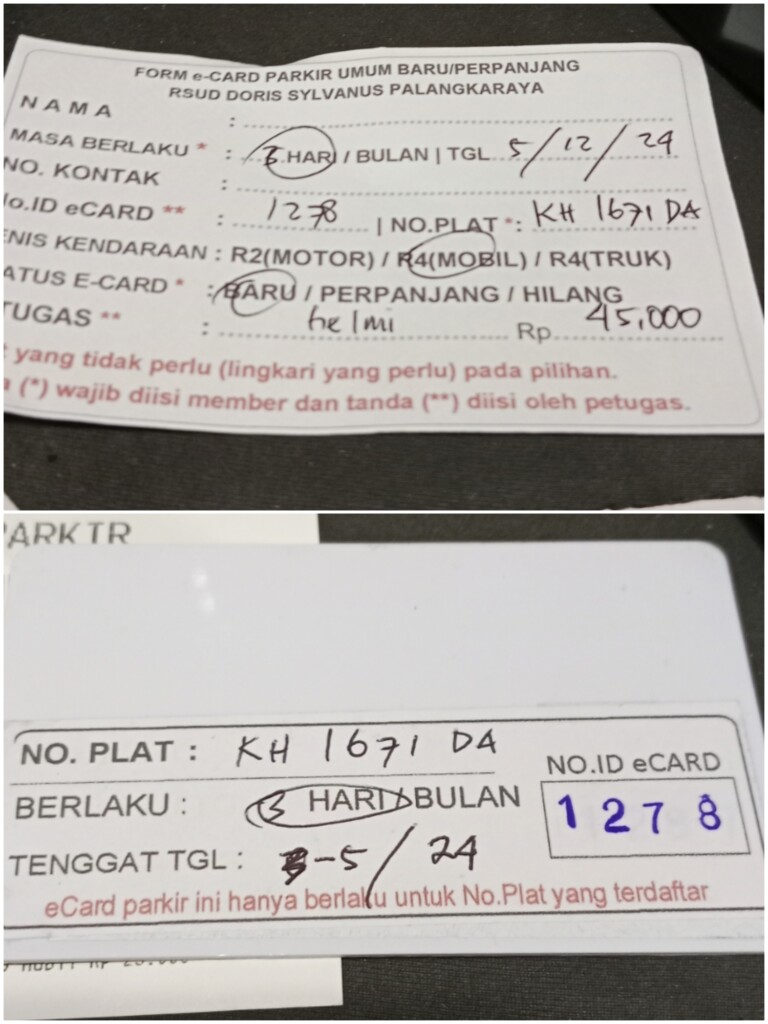 FORM e-CARD PARKIR UMUM BARU/PERPANJANG
RSUD DORIS SYLVANUS PALANGKARAYA
NAMA :
MASA BERLAKU * : 3 HARI / BULAN | TGL 5/12/24
NO. KONTAK :
No.ID eCARD ** : 1278 | NO.PLAT *: KH 1671 DA
ENIS KENDARAAN : R2(MOTOR) / R4(MOBIL) / R4(TRUK)
ATUS E-CARD * : BARU / PERPANJANG / HILANG
TUGAS ** : helmi Rp. 45,000
t yang tidak perlu (lingkari yang perlu) pada pilihan.
a (*) wajib diisi member dan tanda (**) diisi oleh petugas.
PARKIR
NO. PLAT : KH 1671 DA
BERLAKU : 3 HARI / BULAN
NO.ID eCARD
1278
TENGGAT TGL : 3-5/24
eCard parkir ini hanya berlaku untuk No.Plat yang terdaftar